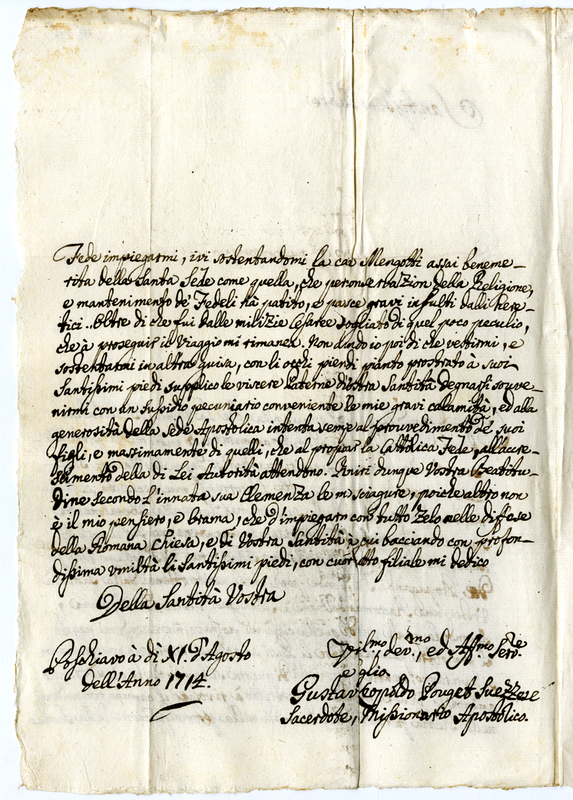 Fede impiegarmi, ivi sostentandomi la casa Mengotti assai beneme-
rita della Santa Sede come quella, che per conservazion della Religione,
e mantenimento de' Fedeli hà patito, e patisce gravi insulti dalli here-
tici. Oltre di che fui dalle milizie Cesaree spogliato di quel poco peculio,
che à proseguir il Viaggio mi rimanea. Non avendo io poi di che vestirmi, e
sostentarmi in altra guisa, con li occhi pieni di pianto prostrato à suoi
Santissimi piedi supplico le viscere Paterne di Vostra Santità degnarsi sovve-
nirmi con un sussidio pecuniario conveniente le mie gravi calamità, ed alla
generosità della Sede Apostolica intenta sempre al provvedimento de' suoi
figli, e massimamente di quelli, che al propagar la Cattolica Fede, all'accre-
scimento della di Lei Autorità attendono. Vostra Beatitu-
dine secondo l'innata sua Clemenza le mie sciagure, poiche altro non
è il mio pensiero, e brama, che d'impiegarmi con tutto Zelo nelle diffese
della Romana Chiesa, e di Vostra Santità à cui bacciando con profon-
dissima umiltà li Santissimi piedi, con cuor filiale mi dedico
Della Santità Vostra
Poschiavo à di XI d'Agosto
dell'Anno 1714.
Umilmo, devmo, ed Affmo Serve
e figlio
Gustavo Leopoldo Pouget Suezzese
Sacerdote, Missionario Apostolico.